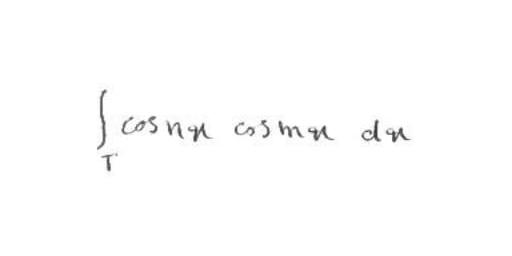 ∫_T cos nx cos mx dx